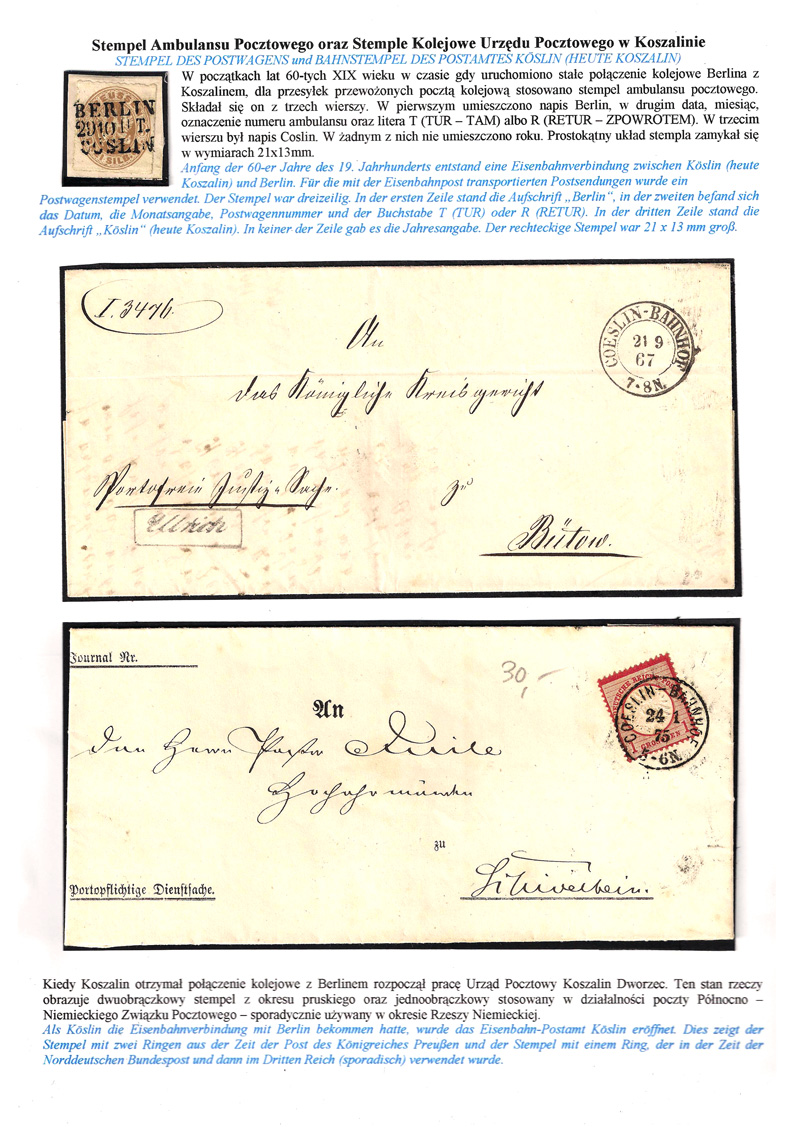 Stempel Ambulansu Pocztowego oraz Stemple Kolejowe Urzędu Pocztowego w Koszalinie
STEMPEL DES POSTWAGENS und BAHNSTEMPEL DES POSTAMTES KÖSLIN (HEUTE KOSZALIN)
BERLIN
29 10 II T.
COSLIN
W początkach lat 60-tych XIX wieku w czasie gdy uruchomiono stałe połączenie kolejowe Berlina z
Koszalinem, dla przesyłek przewożonych pocztą kolejową stosowano stempel ambulansu pocztowego.
Składał się on z trzech wierszy. W pierwszym umieszczono napis Berlin, w drugim data, miesiąc,
oznaczenie numeru ambulansu oraz litera T (TUR – TAM) albo R (RETUR – ZPOWROTEM). W trzecim
wierszu był napis Coslin. W żadnym z nich nie umieszczono roku. Prostokątny układ stempla zamykał się
w wymiarach 21x13mm.
Anfang der 60-er Jahre des 19. Jahrhunderts entstand eine Eisenbahnverbindung zwischen Köslin (heute
Koszalin) und Berlin. Für die mit der Eisenbahnpost transportierten Postsendungen wurde ein
Postwagenstempel verwendet. Der Stempel war dreizeilig. In der ersten Zeile stand die Aufschrift „Berlin", in der zweiten befand sich
das Datum, die Monatsangabe, Postwagennummer und der Buchstabe T (TUR) oder R (RETUR). In der dritten Zeile stand die
Aufschrift „Köslin" (heute Koszalin). In keiner der Zeile gab es die Jahresangabe. Der rechteckige Stempel war 21 x 13 mm groß.
I. 3476.
An
das Königliche Kreisgericht
COESLIN-BAHNHOF
21 9
67
7-8N.
Portofreie Justiz-Sache.
zu
Ullrich
Bütow.
Journal Nr.
30,-
An
den Herrn Pastor
DEUTSCHE REICHS-POST
COESLIN-BAHNHOF
24 1
75
5-6N.
zu
Portopflichtige Dienstsache.
Schivelbein.
Kiedy Koszalin otrzymał połączenie kolejowe z Berlinem rozpoczął pracę Urząd Pocztowy Koszalin Dworzec. Ten stan rzeczy
obrazuje dwuobrączkowy stempel z okresu pruskiego oraz jednoobrączkowy stosowany w działalności poczty Północno –
Niemieckiego Związku Pocztowego – sporadycznie używany w okresie Rzeszy Niemieckiej.
Als Köslin die Eisenbahnverbindung mit Berlin bekommen hatte, wurde das Eisenbahn-Postamt Köslin eröffnet. Dies zeigt der
Stempel mit zwei Ringen aus der Zeit der Post des Königreiches Preußen und der Stempel mit einem Ring, der in der Zeit der
Norddeutschen Bundespost und dann im Dritten Reich (sporadisch) verwendet wurde.